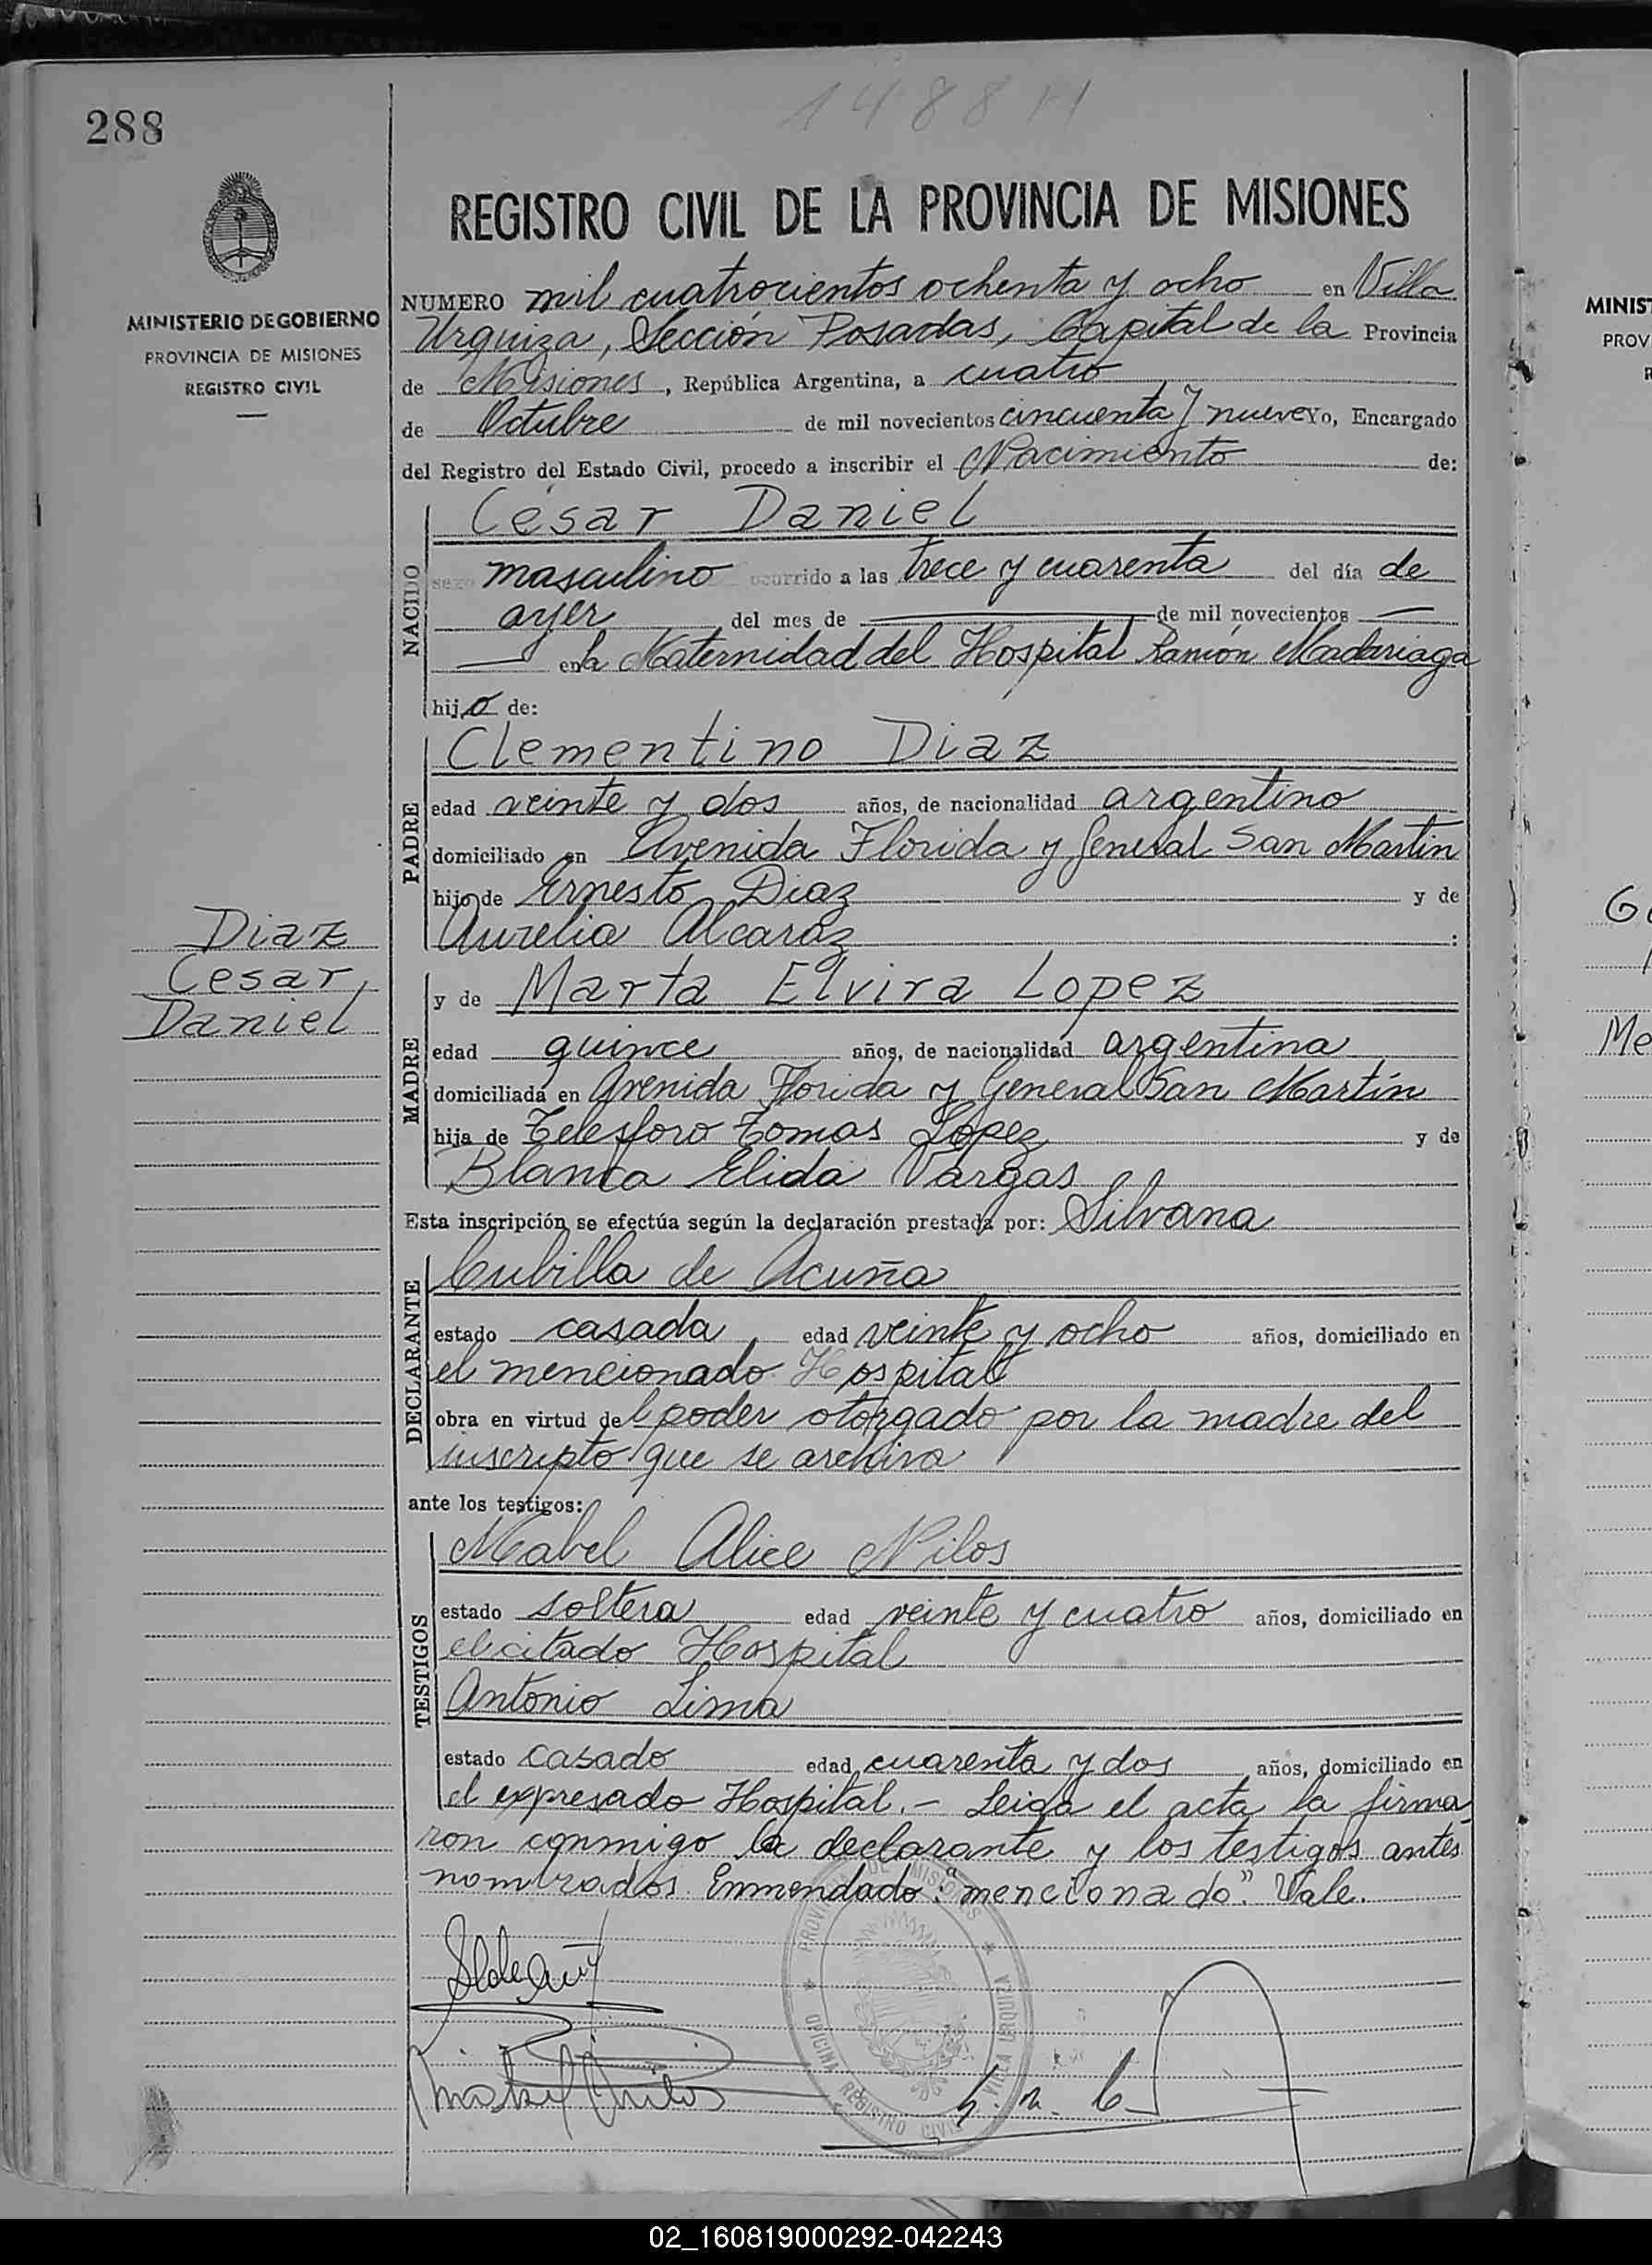 288
1488 H
MINISTERIO DE GOBIERNO
PROVINCIA DE MISIONES
REGISTRO CIVIL
REGISTRO CIVIL DE LA PROVINCIA DE MISIONES
NUMERO mil cuatrocientos ochenta y ocho en Villa
Urquiza, Sección Posadas, Capital de la Provincia
de Misiones, República Argentina, a cuatro
de Octubre de mil novecientos cincuenta y nueve Yo, Encargado
del Registro del Estado Civil, procedo a inscribir el Nacimiento de:
NACIDO
César Daniel
sexo masculino ocurrido a las trece y cuarenta del día de
ayer del mes de — de mil novecientos —
— en la Maternidad del Hospital Ramón Madariaga
hijo de:
PADRE
Clementino Diaz
edad veinte y dos años, de nacionalidad argentino
domiciliado en Avenida Florida y General San Martin
hijo de Ernesto Diaz y de
Aurelia Alcaraz :
Diaz
Cesar,
Daniel
MADRE
y de Marta Elvira Lopez
edad quince años, de nacionalidad argentina
domiciliada en Avenida Florida y General San Martín
hija de Telesforo Tomas López y de
Blanca Elida Vargas
Esta inscripción se efectúa según la declaración prestada por: Silvana
DECLARANTE
Cubilla de Acuña
estado casada, edad veinte y ocho años, domiciliado en
el mencionado Hospital
obra en virtud del poder otorgado por la madre del
inscripto que se archiva
ante los testigos:
TESTIGOS
Mabel Alice Nilos
estado soltera edad veinte y cuatro años, domiciliado en
el citado Hospital
Antonio Lima
estado casado edad cuarenta y dos años, domiciliado en
el expresado Hospital.- Leída el acta la firma
ron conmigo la declarante y los testigos antes
nombrados. Enmendado: "mencionado". Vale.
PROVINCIA DE MISIONES
OFICINA REGISTRO CIVIL
VILLA URQUIZA
MINIS
PROV
R
Me
02_160819000292-042243